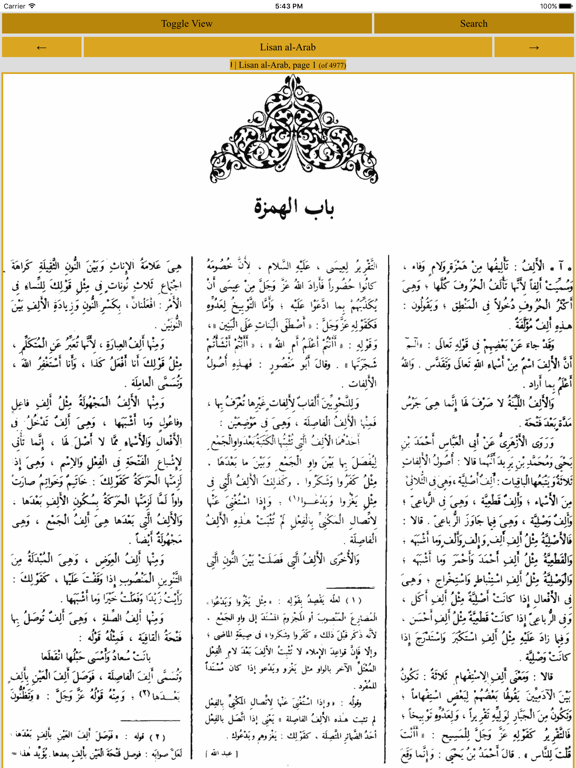 Carrier 5:43 PM 100%
Toggle View Search
← Lisan al-Arab →
! | Lisan al-Arab, page 1 (of 4977)
باب الهمزة
• آ • الأَلِفُ : تَأْلِيفُها مِنْ هَمْزَةٍ وَلامٍ وَفاء ،
وَسُمِّيَتْ أَلِفاً لأَنَّها تَأْلَفُ الْحُرُوفَ كُلَّها ؛ وَهِىَ
أَكْثَرُ الْحُرُوفِ دُخُولاً فِى الْمَنْطِقِ ؛ وَيَقُولُونَ :
هذِهِ أَلِفٌ مُؤَلَّفَةٌ .
وَقَدْ جاءَ عَنْ بَعْضِهِمْ فِى قَوْلِهِ تَعالَى : «الٓمٓ»
أَنَّ الأَلِفَ اسْمٌ مِنْ أَسْماءِ اللهِ تَعالَى وَتَقَدَّس . وَاللهُ
أَعْلَمُ بِما أَراد .
وَالأَلِفُ اللَّيِّنَةُ لا صَرْفَ لَها إِنَّما هِىَ جَرْسُ
مَدَّةٍ بَعْدَ فَتْحَة .
وَرَوَى الأَزْهَرِىُّ عَنْ أَبِى الْعَبَّاسِ أَحْمَدَ بْنِ
يَحْيَى وَمُحَمَّدِ بْنِ يَزِيدَ أَنَّهُما قالا : أُصُولُ الأَلِفاتِ
ثَلاثَةٌ وَيَتْبَعُها الْباقِيات : أَلِفٌ أَصْلِيَّة ، وَهِىَ فِى الثُّلاثِىِّ
مِنَ الأَسْماء ؛ وَأَلِفٌ قَطْعِيَّة ، وَهِىَ فِى الرُّباعِىّ ؛
وَأَلِفٌ وَصْلِيَّة ، وَهِىَ فِيما جاوَزَ الرُّباعِىّ . قالا :
فَالأَصْلِيَّةُ مِثْلُ أَلِفِ أَلِفٍ وَإِلْفٍ وَأَلْفٍ وَما أَشْبَهَه ؛
وَالْقَطْعِيَّةُ مِثْلُ أَلِفِ أَحْمَدَ وَأَحْمَرَ وَما أَشْبَهَه ؛
وَالْوَصْلِيَّةُ مِثْلُ أَلِفِ اسْتِنْباطٍ وَاسْتِخْراج ؛ وَهِىَ
فِى الأَفْعالِ إِذا كانَتْ أَصْلِيَّةً مِثْلُ أَلِفِ أَكَل ،
وَفِى الرُّباعِىِّ إِذا كانَتْ قَطْعِيَّةً مِثْلُ أَلِفِ أَحْسَن ،
وَفِيما زادَ عَلَيْهِ مِثْلُ أَلِفِ اسْتَكْبَرَ وَاسْتَدْرَجَ إِذا
كانَتْ وَصْلِيَّة .
قالا : وَمَعْنَى أَلِفِ الاِسْتِفْهامِ ثَلاثَةٌ : تَكُونُ
بَيْنَ الآدَمِيِّينَ يَقُولُها بَعْضُهُمْ لِبَعْضٍ اسْتِفْهاماً ؛
وَتَكُونُ مِنَ الْجَبَّارِ لِوَلِيِّهِ تَقْرِيراً ، وَلِعَدُوِّهِ تَوْبِيخاً ؛
فَالتَّقْرِيرُ كَقَوْلِهِ عَزَّ وَجَلَّ لِلْمَسِيحِ : « أَأَنْتَ
قُلْتَ لِلنَّاسِ » . قالَ أَحْمَدُ بْنُ يَحْيَى : وَإِنَّما وَقَعَ
التَّقْرِيرُ لِعِيسَى ، عَلَيْهِ السَّلام ، لأَنَّ خُصُومَهُ
كانُوا حُضُوراً فَأَرادَ اللهُ عَزَّ وَجَلَّ مِنْ عِيسَى أَنْ
يُكَذِّبَهُمْ بِما ادَّعَوْا عَلَيْه ؛ وَأَمَّا التَّوْبِيخُ لِعَدُوِّهِ
فَكَقَوْلِهِ عَزَّ وَجَلَّ : « أَصْطَفَى الْبَناتِ عَلَى الْبَنِينَ » ،
وَقَوْلِهِ : « أَأَنْتُمْ أَعْلَمُ أَمِ اللهُ » ، « أَأَنْتُمْ أَنْشَأْتُمْ
شَجَرَتَها » . وقالَ أَبُو مَنْصُورٍ : فَهذِهِ أُصُولُ
الأَلِفات .
وَلِلنَّحْوِيِّينَ أَلْقابٌ لأَلِفاتٍ غَيْرِها تُعْرَفُ بِها ،
فَمِنْها الأَلِفُ الْفاصِلَة ، وَهِىَ فِى مَوْضِعَيْنِ :
أَحَدُهُما الأَلِفُ الَّتِى تُثْبِتُها الْكَتَبَةُ بَعْدَ واوِ الْجَمْعِ
لِيُفْصَلَ بِها بَيْنَ واوِ الْجَمْعِ وَبَيْنَ ما بَعْدَها ،
مِثْلُ كَفَرُوا وَشَكَرُوا ، وَكَذلِكَ الأَلِفُ الَّتِى فِى
مِثْلِ يَغْزُوا وَيَدْعُوا(١) ؛ وَإِذا اسْتُغْنِىَ عَنْها
لاِتِّصالِ الْمَكْنِىِّ بِالْفِعْلِ لَمْ تَثْبُتْ هذِهِ الأَلِفُ
الْفاصِلَة .
وَالأُخْرَى الأَلِفُ الَّتِى فَصَلَتْ بَيْنَ النُّونِ الَّتِى
(١) لعلّه يَقْصِدُ بِقَوْلِه : « مِثْل يَغْزُوا وَيَدْعُوا»
المضارِعَ المنْصوبَ أو المجزومَ المسْنَدَ إلى واوِ الجمْع ،
لأنّه ذكر قبل ذلك « كفَرُوا وشكَرُوا » فى صيغَةِ الماضى ؛
وإلّا فإنّ قواعدَ الإملاء لا تثبت الألِفَ بعدَ لامِ الفِعْلِ
المعْتَلِّ الآخِر بالواو مثل يغزو ويدعو إذا كان مُسْنَداً
للمُفْرَد .
وقوله : « وإذا اسْتُغْنِىَ عنْها لاتِّصالِ المكْنِىِّ بالفعْل
لم تثبت هذه الألِفُ الفاصلة » يعْنى إذا اتّصَل بالفِعْل
أحدُ الضمائر المتّصِلة ، كقولك : يَغْزُوهم ويدعوك .
[ عبد الله ]
هِىَ عَلامَةُ الإِناثِ وَبَيْنَ النُّونِ الثَّقِيلَةِ كَراهَةَ
اجْتِماعِ ثَلاثِ نُوناتٍ فِى مِثْلِ قَوْلِكَ لِلنِّساءِ فِى
الأَمْرِ : افْعَلْنانِّ ، بِكَسْرِ النُّونِ وَزِيادَةِ الأَلِفِ بَيْنَ
النُّونَيْن .
وَمِنْها أَلِفُ الْعِبارَة ، لأَنَّها تُعَبِّرُ عَنِ الْمُتَكَلِّمِ ،
مِثْلُ قَوْلِكَ أَنا أَفْعَلُ كَذا ، وَأَنا أَسْتَغْفِرُ اللهَ ،
وَتُسَمَّى الْعامِلَة .
وَمِنْها الأَلِفُ الْمَجْهُولَةُ مِثْلُ أَلِفِ فاعِلٍ
وَفاعُولٍ وَما أَشْبَهَها ، وَهِىَ أَلِفٌ تَدْخُلُ فِى
الأَفْعالِ وَالأَسْماءِ مِمَّا لا أَصْلَ لَها ، إِنَّما تَأْتِى
لإِشْباعِ الْفَتْحَةِ فِى الْفِعْلِ وَالاِسْمِ ، وَهِىَ إِذا
لَزِمَتْها الْحَرَكَةُ كَقَوْلِكَ : خاتِمٌ وَخَواتِمُ صارَتْ
واواً لَمَّا لَزِمَتْها الْحَرَكَةُ بِسُكُونِ الأَلِفِ بَعْدَها ،
وَالأَلِفُ الَّتِى بَعْدَها هِىَ أَلِفُ الْجَمْعِ ، وَهِىَ
مَجْهُولَةٌ أَيْضاً .
وَمِنْها أَلِفُ الْعِوَضِ ، وَهِىَ الْمُبْدَلَةُ مِنَ
التَّنْوِينِ الْمَنْصُوبِ إِذا وَقَفْتَ عَلَيْها ، كَقَوْلِكَ :
رَأَيْتُ زَيْدا ، وَفَعَلْتُ خَيْرا وَما أَشْبَهَها .
وَمِنْها أَلِفُ الصِّلَةِ ، وَهِىَ أَلِفٌ تُوصَلُ بِها
فَتْحَةُ الْقافِيَة ، فَمِثْلُهُ قَوْلُهُ :
بانَتْ سُعادُ وَأَمْسَى حَبْلُها انْقَطَعا
وَتُسَمَّى أَلِفَ الْفاصِلَة ، فَوَصَلَ أَلِفَ الْعَيْنِ بِأَلِفٍ
بَعْدَها(٢) ؛ وَمِنْهُ قَوْلُهُ عَزَّ وَجَلَّ : « وَتَظُنُّونَ
(٢) قوله : « فَوَصَلَ أَلِفَ العَيْنِ بِأَلِفٍ بعدها »
لعلّ صوابه : فوصل فتْحَةَ العَيْنِ بألِفٍ بعدها. يُؤَيِّدُ هذا =